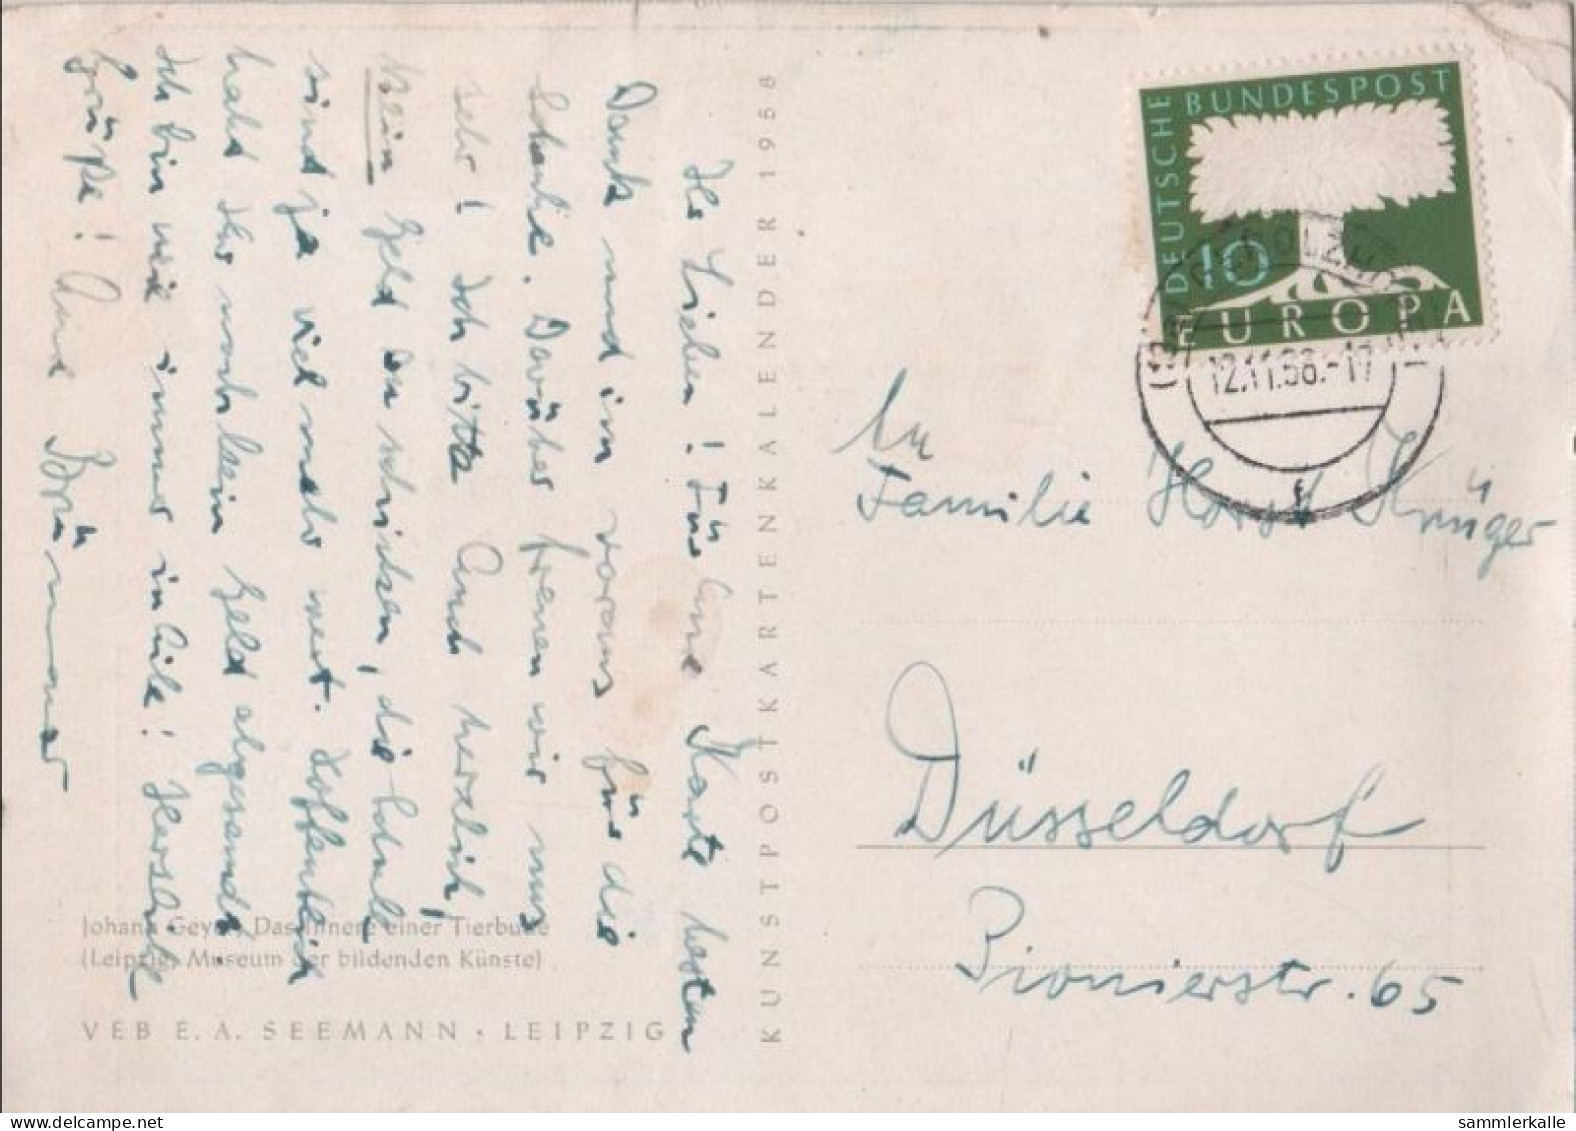 Ihr Lieben! Für Eure Karte besten
Dank und im voraus für die
Schuhe. Darüber freuen wir uns
sehr! Ich bitte Euch herzlich,
kein Geld zu schicken, die Schuhe
sind ja viel mehr wert. Hoffentlich
habt Ihr noch kein Geld abgesandt.
Ich bin wie immer in Eile! Herzliche
Grüße! Eure
Johann Geyer, Das Innere einer Tierbude
(Leipzig, Museum der bildenden Künste)
VEB E. A. SEEMANN · LEIPZIG
KUNSTPOSTKARTENKALENDER 1958
DEUTSCHE BUNDESPOST
10
EUROPA
12.11.58.-17
An
Familie Horst Krüger
Düsseldorf
Pionierstr. 65
sammlerkalle